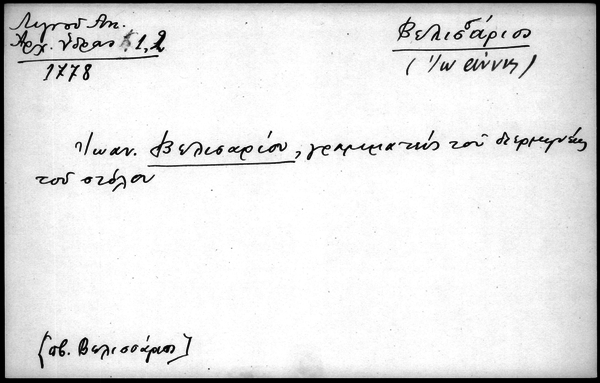 Λιγνοῦ Ἀν.
Ἀρχ. Ὕδρας 1, 2
1778
Βελισάριος
(Ἰωάννης)
Ἰωαν. Βελισαρίου, γραμματεὺς τοῦ διερμηνέως
τοῦ στόλου
[σβ. Βελισσάριος]